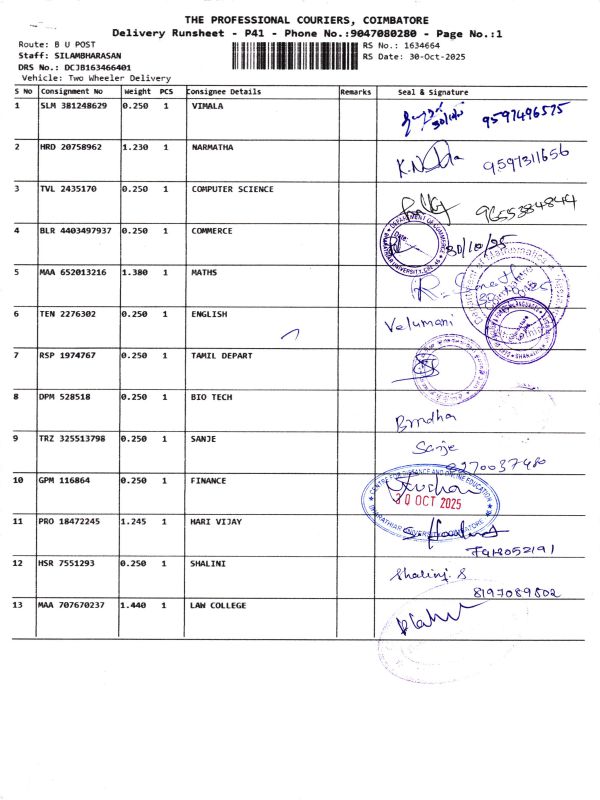 THE PROFESSIONAL COURIERS, COIMBATORE
Delivery Runsheet - P41 - Phone No.:9047080280 - Page No.:1
Route: B U POST
RS No.: 1634664
Staff: SILAMBHARASAN
RS Date: 30-Oct-2025
DRS No.: DCJB163466401
Vehicle: Two Wheeler Delivery
S No Consignment No Weight PCS Consignee Details Remarks Seal & Signature
1 SLM 381248629 0.250 1 VIMALA 9597496575
2 HRD 20758962 1.230 1 NARMATHA 9597311656
3 TVL 2435170 0.250 1 COMPUTER SCIENCE 9655384844
4 BLR 4403497937 0.250 1 COMMERCE 30/10/25
DEPARTMENT OF COMMERCE
5 MAA 652013216 1.380 1 MATHS
6 TEN 2276302 0.250 1 ENGLISH Velumani
7 RSP 1974767 0.250 1 TAMIL DEPART
8 DPM 528518 0.250 1 BIO TECH Brindha
9 TRZ 325513798 0.250 1 SANJE Sanje
8270037480
10 GPM 116864 0.250 1 FINANCE
CENTRE FOR DISTANCE AND ONLINE EDUCATION
30 OCT 2025
BHARATHIAR UNIVERSITY
11 PRO 18472245 1.245 1 HARI VIJAY
12 HSR 7551293 0.250 1 SHALINI Shalini. S
8197089802
13 MAA 707670237 1.440 1 LAW COLLEGE